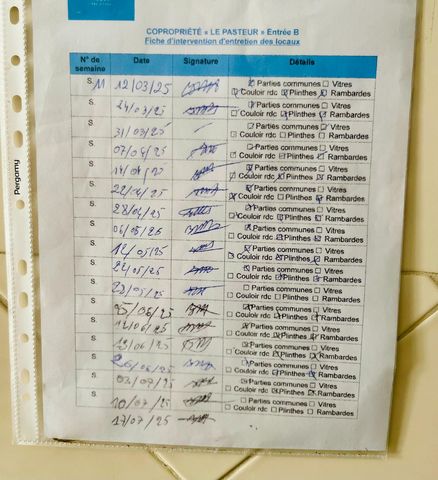 COPROPRIÉTÉ « LE PASTEUR » Entrée B
Fiche d'intervention d'entretien des locaux
N° de semaine Date Signature Détails
S. 11 12/03/25 Parties communes Vitres
Couloir rdc Plinthes Rambardes
S. 24/03/25 Parties communes Vitres
Couloir rdc Plinthes Rambardes
S. 31/03/25 Parties communes Vitres
Couloir rdc Plinthes Rambardes
S. 07/04/25 Parties communes Vitres
Couloir rdc Plinthes Rambardes
S. 14/04/25 Parties communes Vitres
Couloir rdc Plinthes Rambardes
S. 22/04/25 Parties communes Vitres
Couloir rdc Plinthes Rambardes
S. 28/04/25 Parties communes Vitres
Couloir rdc Plinthes Rambardes
S. 06/05/25 Parties communes Vitres
Couloir rdc Plinthes Rambardes
S. 12/05/25 Parties communes Vitres
Couloir rdc Plinthes Rambardes
S. Parties communes Vitres
Couloir rdc Plinthes Rambardes
S. Parties communes Vitres
Couloir rdc Plinthes Rambardes
S. Parties communes Vitres
Couloir rdc Plinthes Rambardes
S. 12/06/25 Parties communes Vitres
Couloir rdc Plinthes Rambardes
S. 19/06/25 Parties communes Vitres
Couloir rdc Plinthes Rambardes
S. 26/06/25 Parties communes Vitres
Couloir rdc Plinthes Rambardes
S. 03/07/25 Parties communes Vitres
Couloir rdc Plinthes Rambardes
S. 10/07/25 Parties communes Vitres
Couloir rdc Plinthes Rambardes
17/07/25
Pergamy